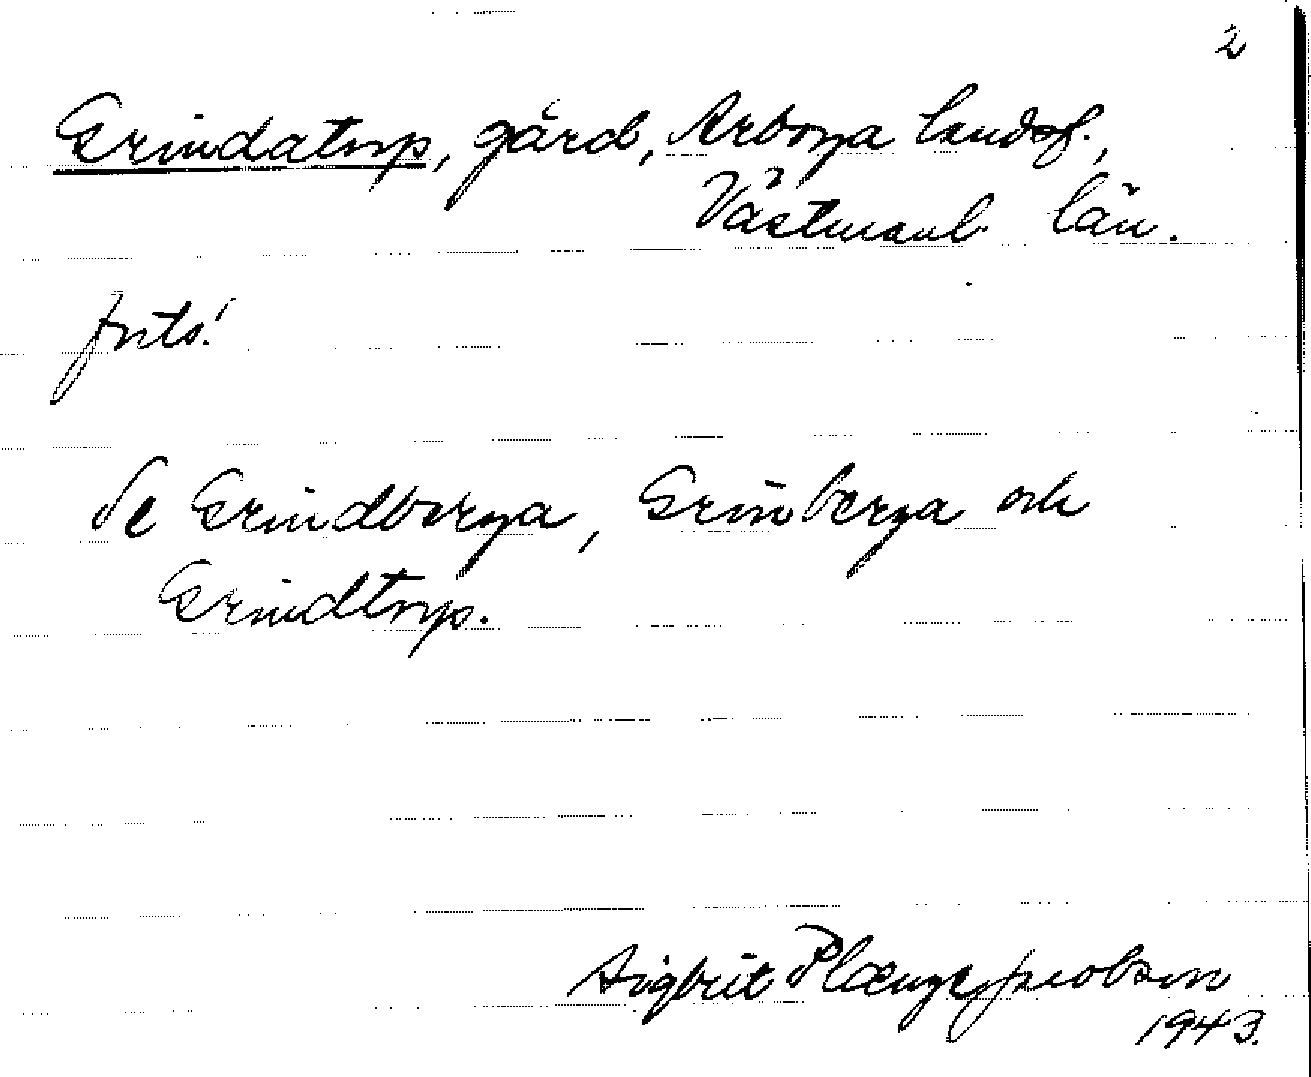 2
Grindatorp, gård, Arboga landsf.,
Västmanl. län.
forts.
Se Grindborga, Grinberga och
Grindtorp.
Sigbrit Plænge Jacobson
1943.